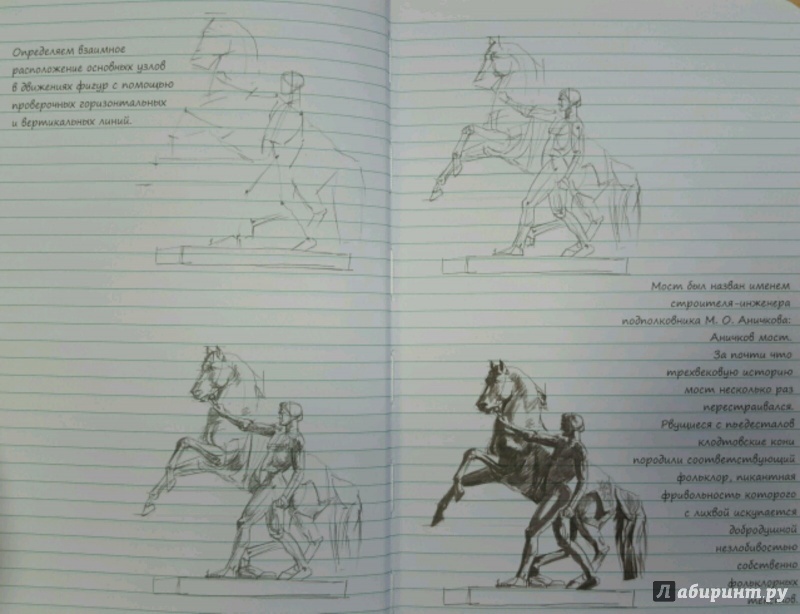 Определяем взаимное
расположение основных узлов
в движениях фигур с помощью
проверочных горизонтальных
и вертикальных линий.
Мост был назван именем
строителя-инженера
подполковника М. О. Аничкова:
Аничков мост.
За почти что
трехвековую историю
мост несколько раз
перестраивался.
Рвущиеся с пьедесталов
клодтовские кони
породили соответствующий
фольклор, пикантная
фривольность которого
с лихвой искупается
добродушной
незлобивостью
собственно
фольклорных
Лабиринт.ру